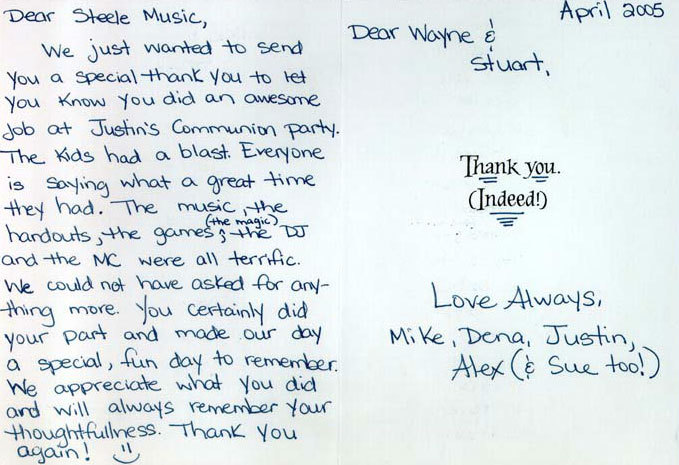 Dear Steele Music,
We just wanted to send
you a special thank you to let
you know you did an awesome
job at Justin's Communion party.
The kids had a blast. Everyone
is saying what a great time
they had. The music, the
(the magic)
handouts, the games, & the DJ
and the MC were all terrific.
We could not have asked for any-
thing more. You certainly did
your part and made our day
a special, fun day to remember.
We appreciate what you did
and will always remember your
thoughtfullness. Thank you
again!
April 2005
Dear Wayne &
Stuart,
Thank you.
(Indeed!)
Love Always,
Mike, Dena, Justin,
Alex (& Sue too!)